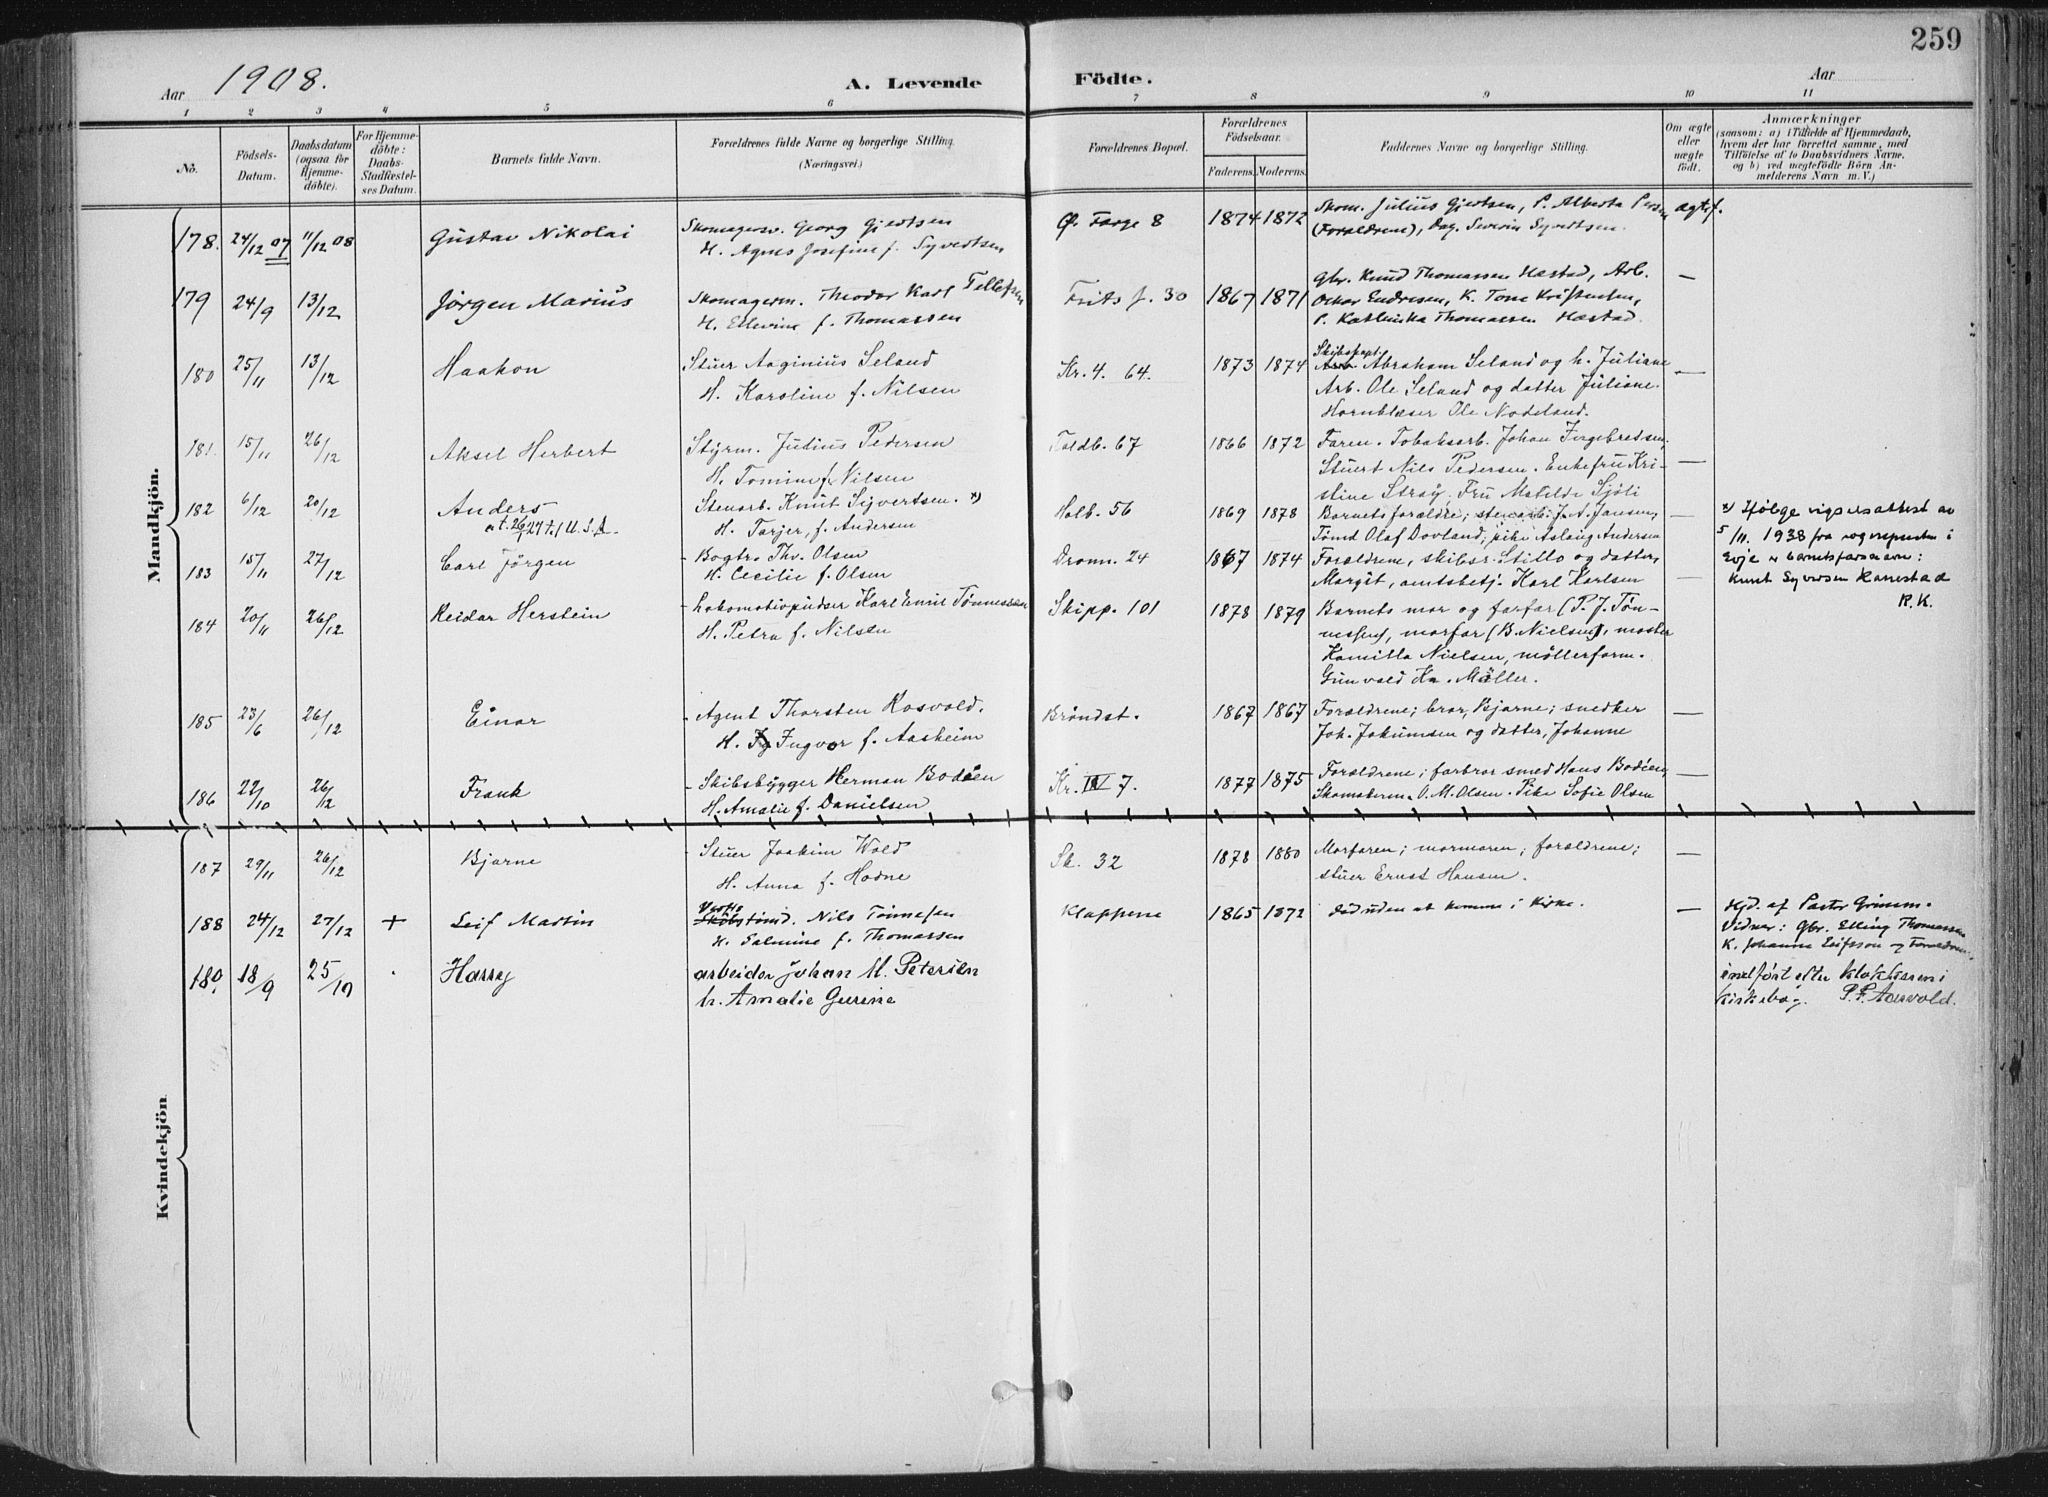 259
Aar 1908. A. Levende Födte. Aar
1 2 3 4 5 6 7 8 9 10 11
No. Födsels-Datum. Daabsdatum (ogsaa for Hjemmedöbte). For Hjemmedöbte: Daabs-Stadfæstelses Datum. Barnets fulde Navn. Forældrenes fulde Navne og borgerlige Stilling. (Næringsvei.) Forældrenes Bopæl. Forældrenes Födselsaar. Faderens. Moderens. Faddernes Navne og borgerlige Stilling. Om ægte eller uægte födt. Anmærkninger (saasom: a) i Tilfælde af Hjemmedaab, hvem der har forrettet samme, med Tilföielse af to Daabsvidners Navne, og b) ved uægtefödte Börn Anmelderens Navn m. V.)
Mandkjön.
178. 24/12 07 11/12 08 Gustav Nikolai Skomagersv. Georg Gjertsen Ø. Farge 8 1874 1872 Skom. Julius Gjertsen, P. Alberta ægtef.
H. Agnes Josefine f. Syvertsen (Forældrene), Dag. Severin Syvertsen.
179 24/9 13/12 Jørgen Marius Skomagerm. Theodor Karl Tellefsen Frits f. 30 1867 1871 Gbr. Knud Thomassen Hæstad, Arb. —
H. Elevine f. Thomassen Oskar Endresen, K. Tone Kristensen,
P. Kathinka Thomassen Hæstad.
180 25/11 13/12 Haakon Stuer Aaginius Seland Kr. 4. 64. 1873 1874 Skibskapt. Abraham Seland og h. Juliane —
H. Karoline f. Nilsen Arb. Ole Seland og datter Juliane.
Hornblæser Ole Nodeland.
181. 15/11 26/12 Aksel Herbert Styrm. Judius Pedersen Toldb. 67 1866 1872 Faren. Tobaksarb. Johan Ingebretsen,
H. Tomine f. Nilsen Stuert Nils Pedersen. Enkefru Kri- —
182 6/12 20/12 Anders Stenarb. Knut Syvertsen. x) Holb. 56 1869 1878 stine Stray, Fru Matilde Sjöli
Barnets forældre; stenarb. J. A. Jansen,
26/1 27 U.S.A. H. Tarjer, f. Andersen Tømd Olaf Dovland; pike Aslaug Andersen
x) Ifølge vigselsattest av
5/11. 1938 fra sognepresten i
Evje er barnets farsnavn:
Knut Syversen Rannestad
R.K.
183 15/11 27/12 Carl Jörgen Bogtr. Thv. Olsen Dronn. 24 1867 1874 Forældrene, skibsr. Stillo og datter,
H. Cecilie f. Olsen Margit, amtsbetj. Karl Karlsen —
184 20/11 26/12 Reidar Herstein Lokomotivpudser Karl Emil Tönnessen Skipp. 101 1878 1879 Barnets mor og farfar (P. J. Tön-
H. Petra f. Nilsen nessen), morfar (B. Nielsen), moster
Kamilla Nielsen, möllerform.
Gunvald Kr. Möller.
185 23/6 26/12 Einar Agent Thorsten Rosvold. Bröndst. 1867 1867 Forældrene; bror, Bjarne; snedker —
H. Ingvor f. Aasheim Joh. Jokumsen og datter, Johanne
186 22/10 26/12 Frank Skibsbygger Herman Bodöen Kr. IV 7. 1877 1875 Forældrene; farbror smed Hans Bodöen, —
H. Amalie f. Danielsen Skomakerm. O. M. Olsen. Pike Sofie Olsen
Kvindekjön
187 29/11 26/12 Bjarne Stuer Joakim Wold Sk. 32 1878 1880 Morfaren; mormoren; forældrene; —
H. Anna f. Hodne stuer Ernst Hansen.
188 24/12 27/12 + Leif Martin Skibstömd. Nils Tönnesen Klappene 1865 1872 död uden at komme i kirke. — Hjd. af Pastor Grimm.
H. Salmine f. Thomassen Vidner: Gbr. Elling Thomassen
K. Johanne Leifsson og Forældrene.
189. 18/9 25/10 Harry arbeider Johan M. Petersen indført efter klokkeren i
h. Amalie Gurine kirkebog. P. F. Aasvold.